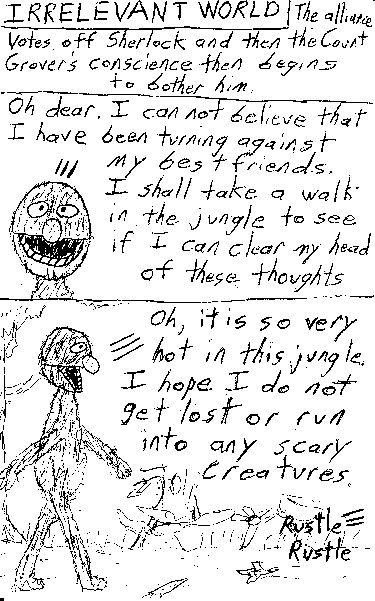 IRRELEVANT WORLD | The alliance
Votes off Sherlock and then the Count
Grover's conscience then begins
to bother him.
Oh dear. I can not believe that
I have been turning against
my best friends.
I shall take a walk
in the jungle to see
if I can clear my head
of these thoughts
Oh, it is so very
hot in this jungle.
I hope I do not
get lost or run
into any scary
creatures.
Rustle
Rustle